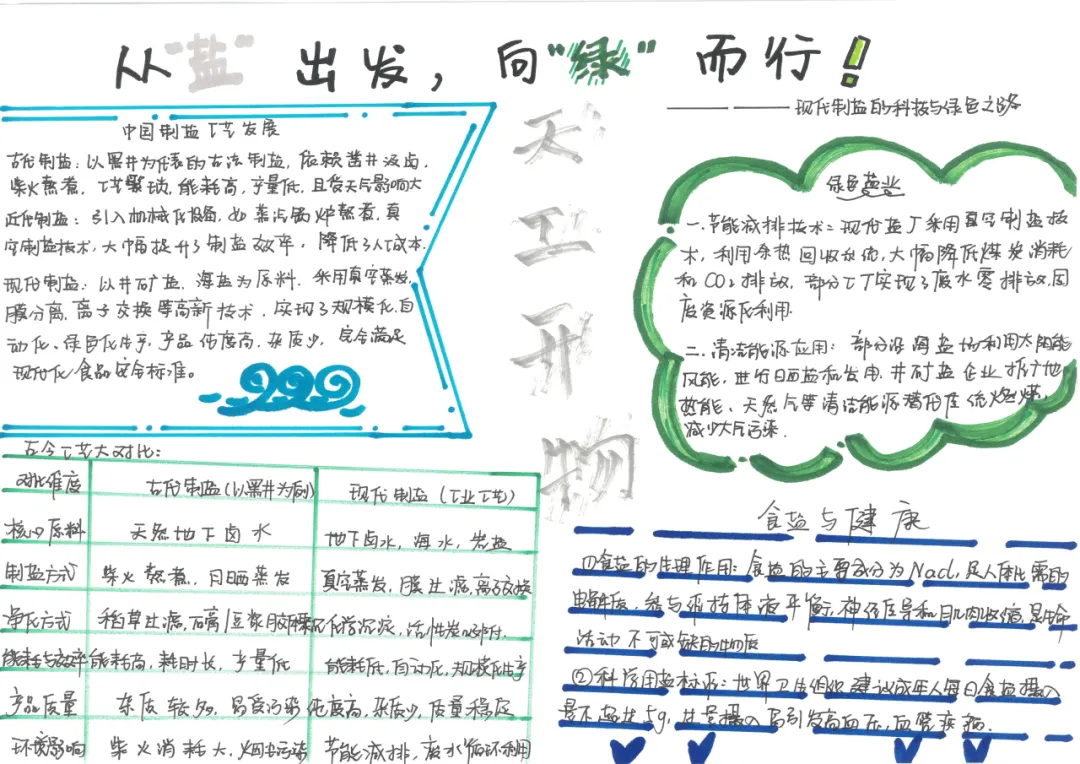 从“盐”出发，向“绿”而行！
——— ——— 现代制盐的科技与绿色之路
天工开物
中国制盐工艺发展
古代制盐：以黑井为代表的古法制盐，依赖凿井汲卤，
柴火熬煮，工艺繁琐，能耗高，产量低，且受天气影响大
近代制盐：引入机械化设备，如蒸汽锅炉熬煮，真
空制盐技术，大幅提升了制盐效率，降低了人工成本.
现代制盐：以井矿盐、海盐为原料.采用真空蒸发，
膜分离，离子交换等高新技术，实现了规模化，自
动化、绿色化生产，产品纯度高，杂质少，完全满足
现代化食品安全标准。
绿色盐业
一.节能减排技术：现代盐厂采用真空制盐技
术，利用余热回收系统，大幅降低煤炭消耗
和CO₂排放，部分工厂实现了废水零排放，固
废资源化利用.
二.清洁能源应用：部分沿海盐场利用太阳能
风能，进行晒盐和发电.井矿盐企业推广地
热能、天然气等清洁能源替代传统燃煤，
减少大气污染.
古今工艺大对比：
对比维度 古代制盐（以黑井为例） 现代制盐（工业工艺）
核心原料 天然地下卤水 地下卤水，海水，岩盐
制盐方式 柴火熬煮，日晒蒸发 真空蒸发，膜过滤，离子交换
净化方式 稻草过滤，石膏豆浆 化学沉淀，活性炭吸附.
能耗与效率 能耗高，耗时长，产量低 能耗低，自动化，规模化生产
产品质量 杂质较多，易受污染 纯度高，杂质少，质量稳定
环境影响 柴火消耗大，烟尘污染 节能减排，废水循环利用
食盐与健康
①食盐的生理作用：食盐的主要成分为Nacl，是人体必需的
电解质，参与维持体液平衡，神经传导和肌肉收缩，是生命
活动不可或缺的物质
②科学用盐标准：世界卫生组织建议成年人每日食盐摄入
量不超过5g，过量摄入易引发高血压，血管疾病.